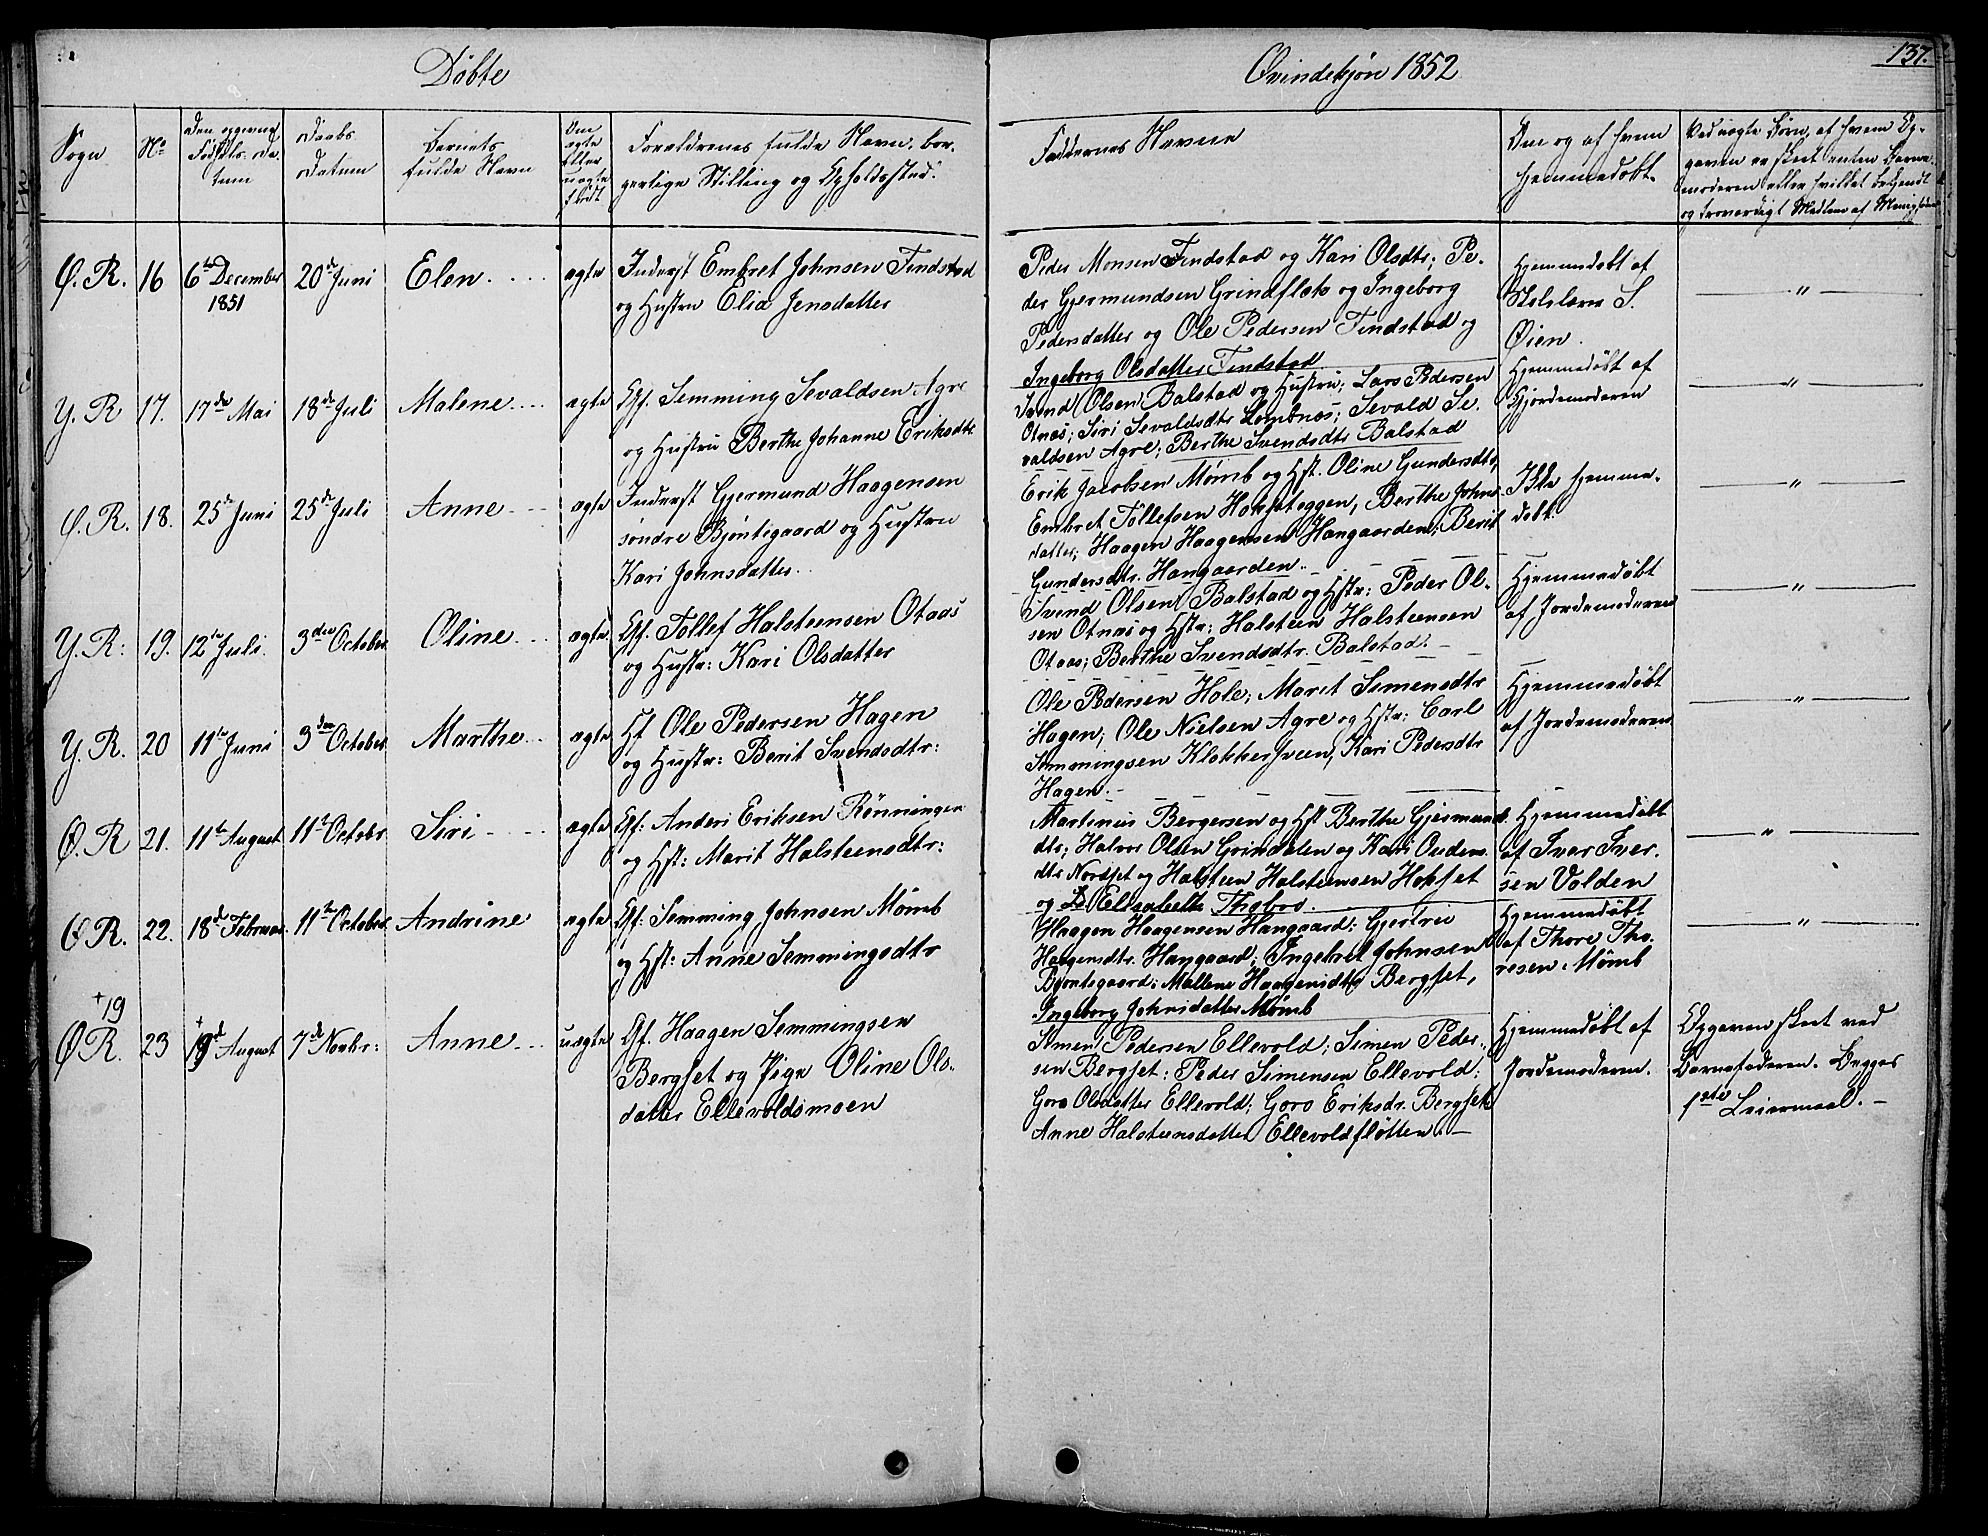 Døbte
Qvindekjøn 1852
137.
Sogn
No
Den opgivne
Fødsels-Da-
tum
Daabs
Datum
Barnets
fulde Navn
Om
ægte
eller
uægte
født
Forældrenes fulde Navn, bor-
gerlige Stilling og Opholdssted.
Faddernes Navne
Om og af hvem
hjemmedøbt.
Ved uægte Børn, af hvem Op-
gaven er skeet enten Barne-
moderen eller hvilket bekjendt
og troværdigt Medlem af Menigheden
Ø. R. 16 6te December 20de Juni Elen ægte Inderst Embret Johnsen Findstad
1851
og Hustru Elia Jensdatter
Peder Monsen Findstad og Kari Olsdtr; Pe-
der Gjermundsen Grindflæk og Ingeborg
Pedersdatter og Ole Pedersen Findstad og
Ingeborg Olsdatter Findstad
Hjemmedøbt af
Skolelærer S.
Øien.
"
Y. R 17. 17de Mai 18de Juli Malene ægte Gf. Semming Sevaldsen Agre
og Hustru Berthe Johanne Eriksdtr
Svend Olsen Balstad og Hustru; Lars Pedersen
Otnæs; Siri Sevaldsdtr Lombnæs; Sevald Se-
valdsen Agre; Berthe Svendsdtr Balstad
Hjemmedøbt af
Gjordemoderen
"
Ø. R. 18. 25de Juni 25de Juli Anne ægte Inderst Gjermund Haagensen
søndre Bjøntegaard og Hustru
Kari Johnsdatter.
Erik Jacobsen Mømb og Hst. Oline Gundersdtr,
Embret Tollefsen Hokseteggen, Berthe Johns-
datter; Haagen Haagensen Hangaarden; Berit
Gundersdtr. Hangaarden.
Ikke hjemme-
døbt.
"
Y. R: 19. 12te Juli. 3den October Oline ægte Gf. Tollef Halsteensen Otnæs
og Hustr: Kari Olsdatter
Svend Olsen Balstad og Hstr: Peder Ol-
sen Otnæs og Hstr: Halsteen Halsteensen
Otnæs; Berthe Svendsdtr. Balstad.
Hjemmedøbt
af Jordemoderen
"
Y. R. 20 11te Juni 3den October Marthe ægte Gf Ole Pedersen Hagen
og Hustr: Berit Svendsdtr:
Ole Pedersen Hole; Marit Simensdtr
Hagen; Ole Nielsen Agre og Hstr: Carl
Semmingsen Klokkersveen, Kari Pedersdtr
Hagen.
Hjemmedøbt
af Jordemoderen
"
Ø. R 21. 11te August 11te Octobr Siri ægte Gf: Anders Eriksen Rønningen
og Hst: Marit Halsteensdtr:
Martinus Bergersen og Hst Berthe Gjermunds-
dtr; Halvor Olsen Grindalen og Kari Oudens-
dtr Nordset og Halsteen Halsteensen Hokset
og Elisabeth Thobro.
Hjemmedøbt
af Iver Iver-
sen Volden
"
Ø R. 22. 18de Februar. 11te October Andrine ægte Gf: Semming Johnsen Mømb
og Hst: Anne Semmingsdtr
Haagen Haagensen Hangaard; Gjertrud
Haagensdtr. Hangaard; Ingebret Johnsen
Bjøntegaard; Mallene Haagensdtr Bergset,
Ingeborg Johnsdatter Mømb
Hjemmedøbt
af Thore Tho-
resen Mømb
"
+19
Ø R. 23 +19de August 7de Novbr: Anne uægte Gf. Haagen Semmingsen
Bergset og Pige Oline Ols-
datter Ellevoldsmoen
Simen Pedersen Ellevold; Simen Peder-
sen Bergset; Peder Simensen Ellevold;
Goro Olsdatter Ellevold; Goro Eriksdr. Bergset
Anne Halsteensdatter Ellevoldfløtten.
Hjemmedøbt af
Jordemoderen.
Opgaven skeet ved
Barnefaderen. Begges
1ste Leiermaal.